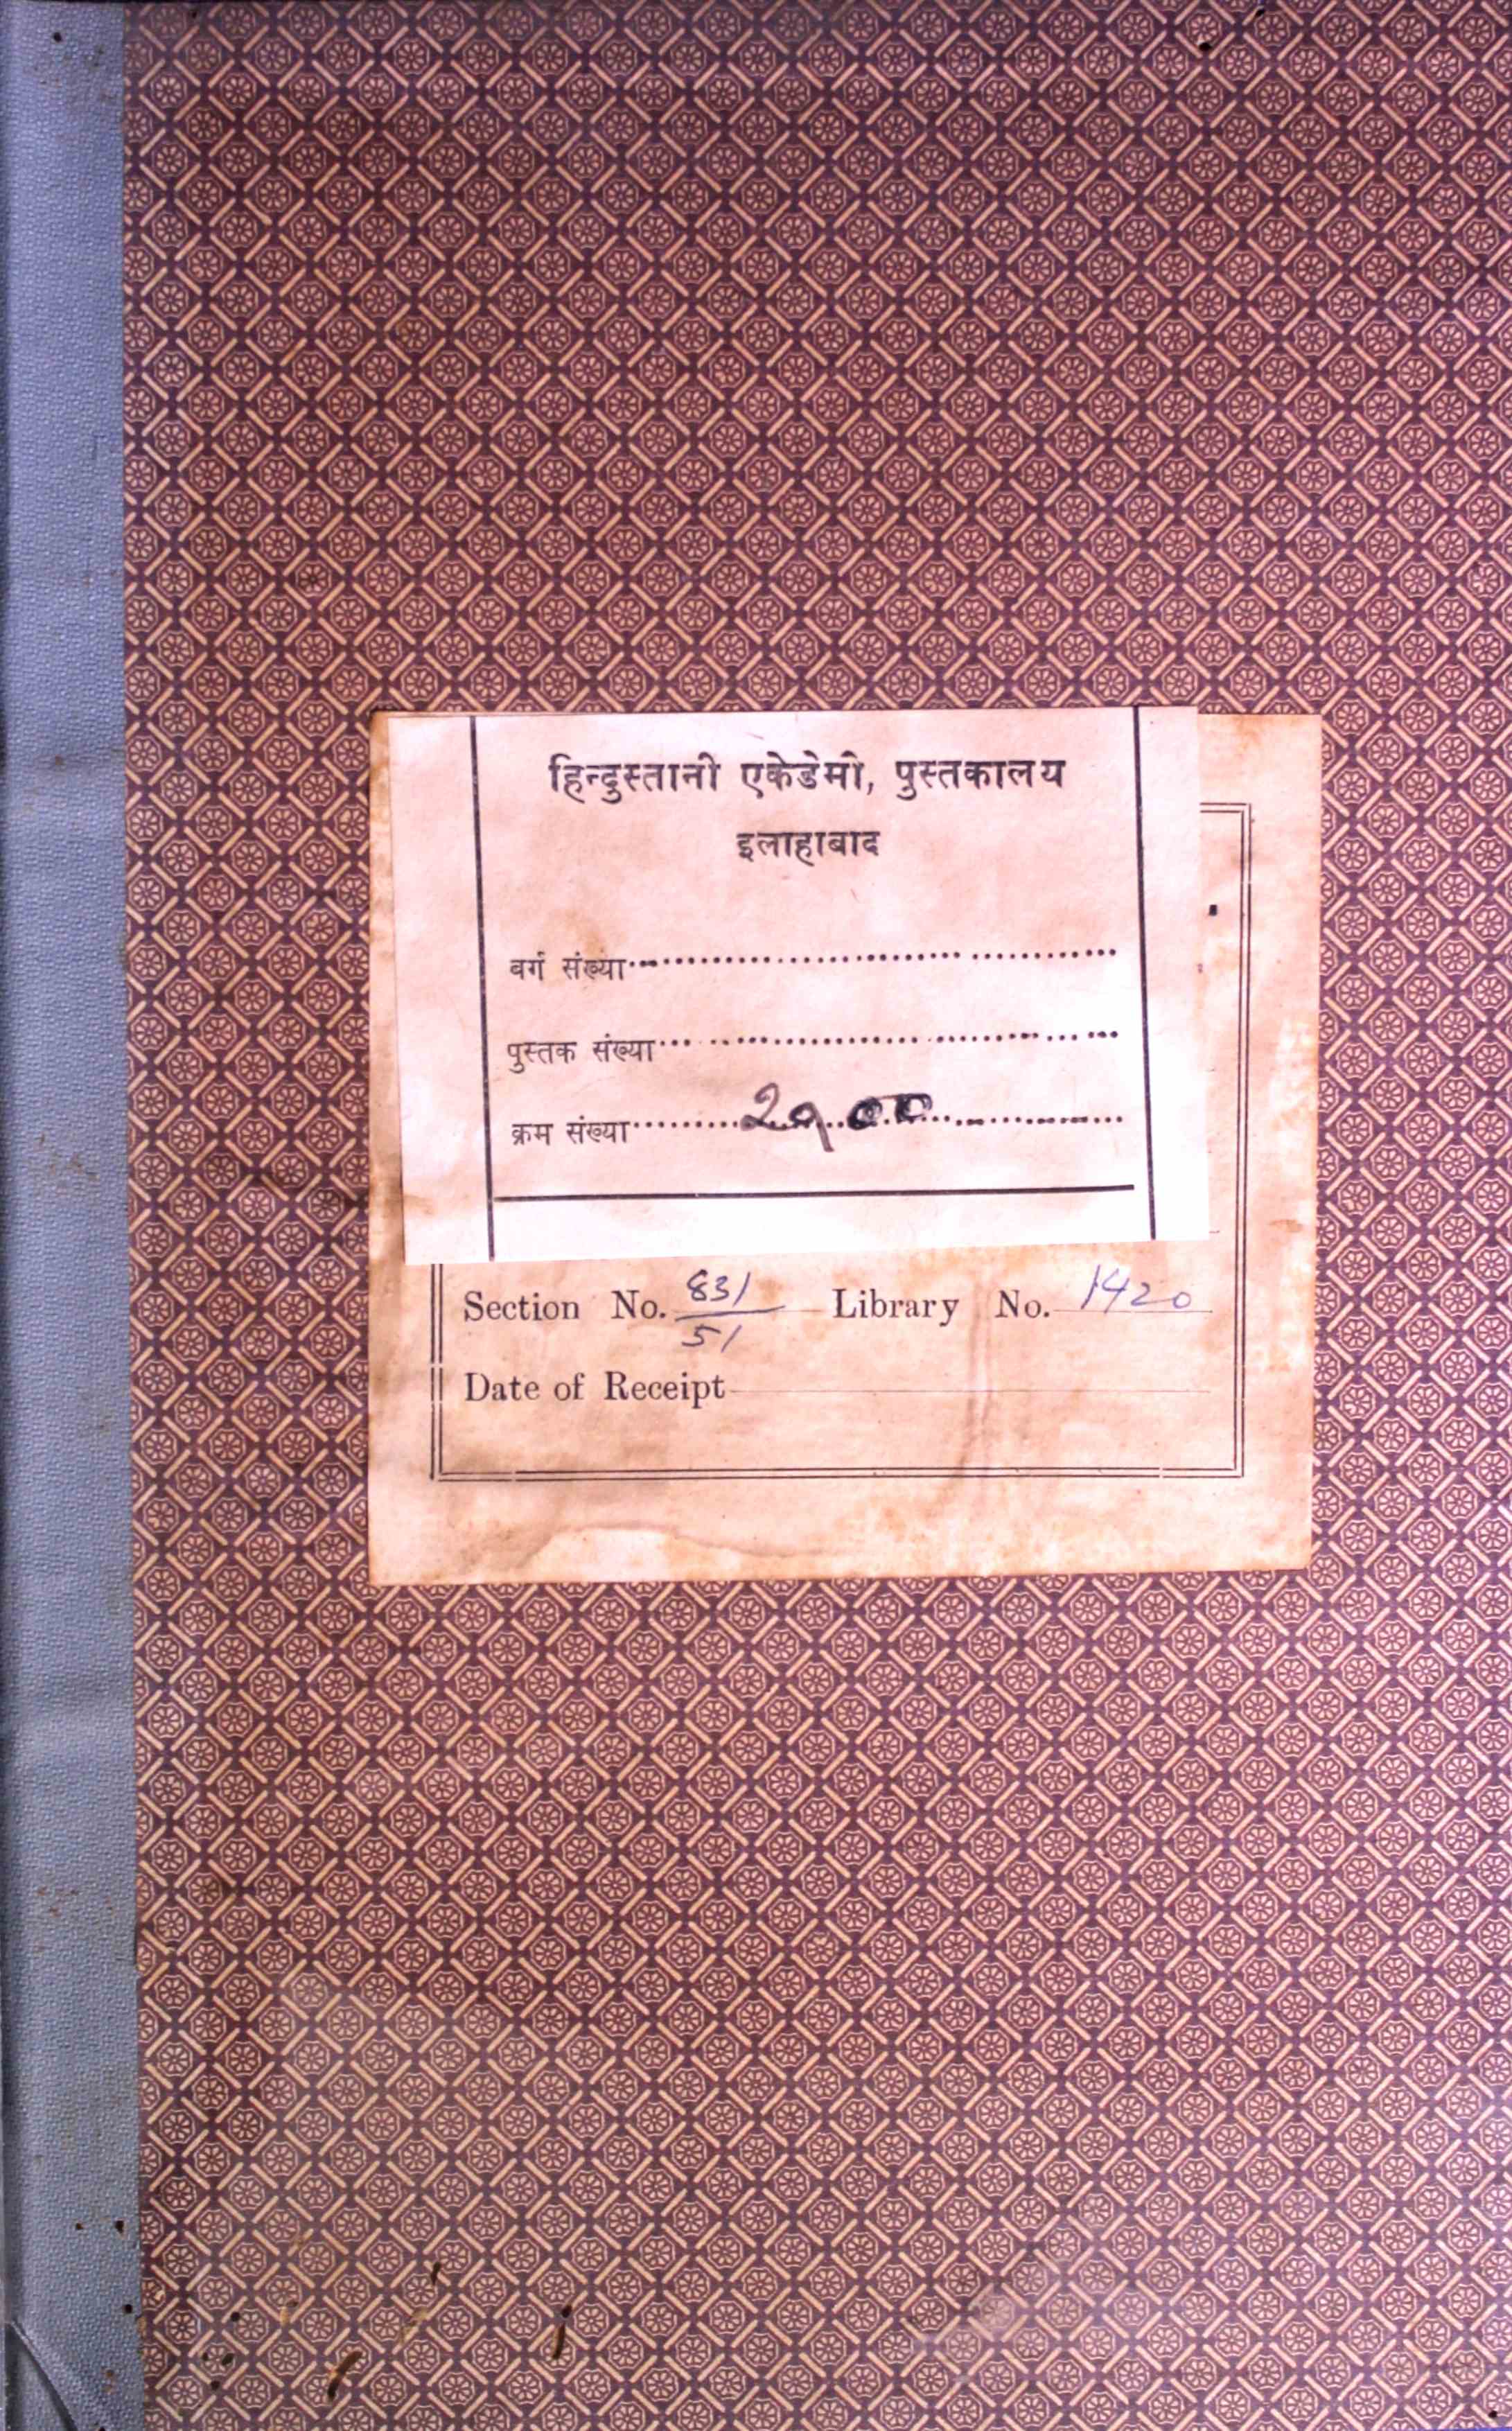 हिन्दुस्तानी एकेडेमी, पुस्तकालय
इलाहाबाद
वर्ग संख्या
पुस्तक संख्या
क्रम संख्या २१००
Section No. 831/51 Library No. 1420
Date of Receipt